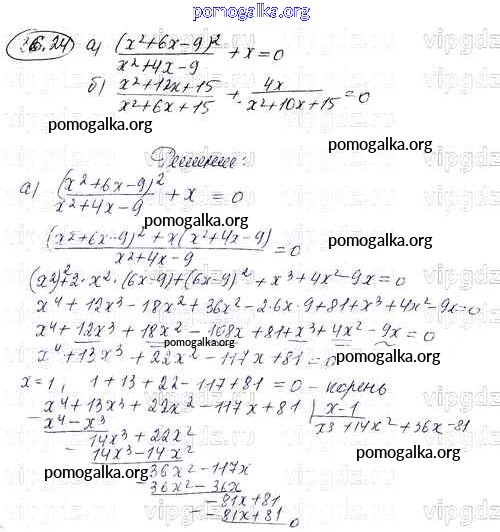 pomogalka.org
26.24 а) (x²+6x-9)²/(x²+4x-9) + x = 0
б) (x²+12x+15)/(x²+6x+15) + 4x/(x²+10x+15) = 0
pomogalka.org
pomogalka.org
Решение:
а) (x²+6x-9)²/(x²+4x-9) + x = 0
pomogalka.org
((x²+6x-9)² + x(x²+4x-9))/(x²+4x-9) = 0
pomogalka.org
(x2)²+2·x²·(6x-9)+(6x-9)²+x³+4x²-9x=0
x⁴+12x³-18x²+36x²-2·6x·9+81+x³+4x²-9x=0
x⁴+12x³+18x²-108x+81+x³+4x²-9x=0
pomogalka.org
x⁴+13x³+22x²-117x+81=0
x=1, 1+13+22-117+81=0 - корень
x⁴+13x³+22x²-117x+81 | x-1
x⁴-x³ x3+14x²+36x-81
14x³+22x²
14x³-14x²
pomogalka.org
36x²-117x
pomogalka.org
36x²-36x
-81x+81
-81x+81
0